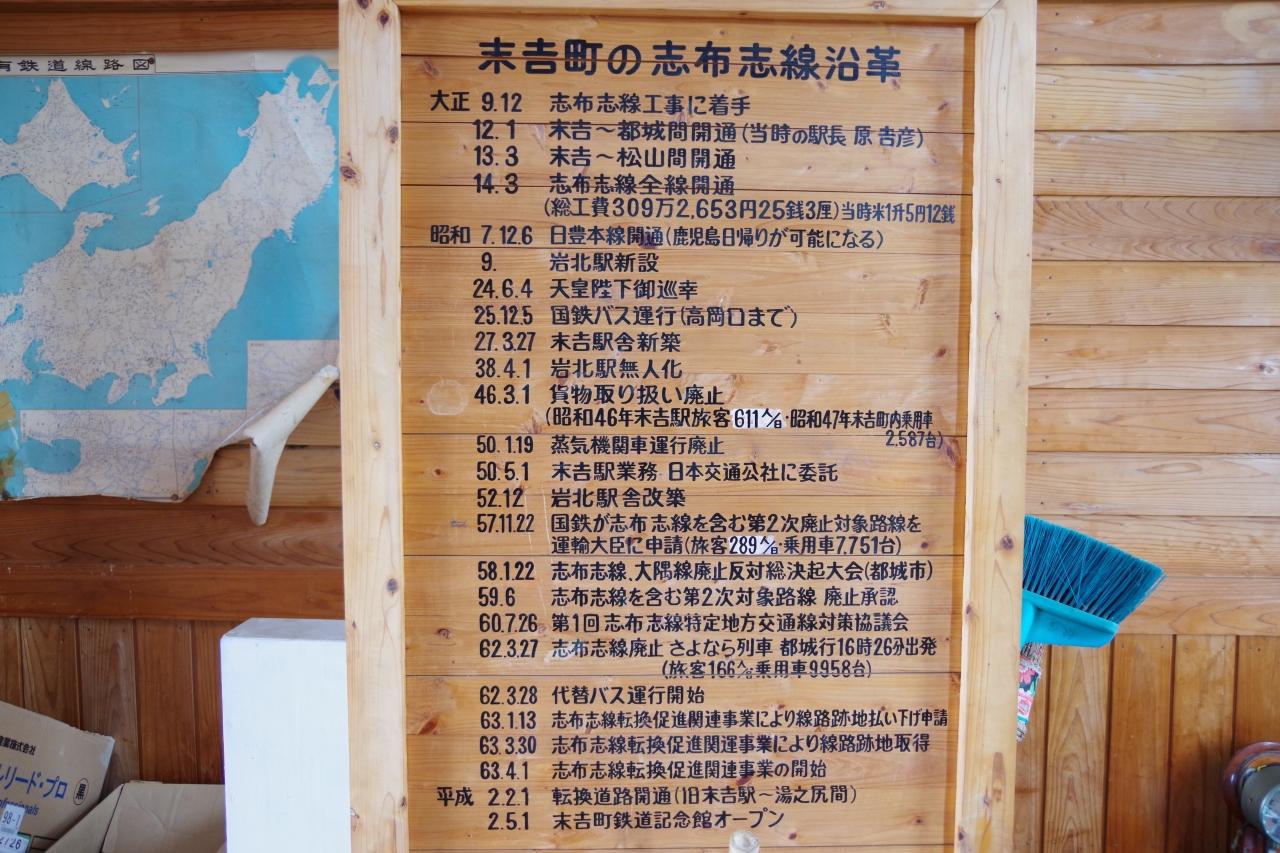 有鉄道線路図
末吉町の志布志線沿革
大正 9.12 志布志線工事に着手
12.1 末吉～都城間開通(当時の駅長 原 吉彦)
13.3 末吉～松山間開通
14.3 志布志線全線開通
(総工費309万2,653円25銭3厘)当時米1升5円12銭
昭和 7.12.6 日豊本線開通(鹿児島日帰りが可能になる)
9. 岩北駅新設
24.6.4 天皇陛下御巡幸
25.12.5 国鉄バス運行(高岡口まで)
27.3.27 末吉駅舎新築
38.4.1 岩北駅無人化
46.3.1 貨物取り扱い廃止
(昭和46年末吉駅旅客611人/日・昭和47年末吉町内乗用車
2.587台)
50.1.19 蒸気機関車運行廃止
50.5.1 末吉駅業務 日本交通公社に委託
52.12 岩北駅舎改築
57.11.22 国鉄が志布志線を含む第2次廃止対象路線を
運輸大臣に申請(旅客289人/日・乗用車7.751台)
58.1.22 志布志線、大隅線廃止反対総決起大会(都城市)
59.6 志布志線を含む第2次対象路線 廃止承認
60.7.26 第1回志布志線特定地方交通線対策協議会
62.3.27 志布志線廃止 さよなら列車 都城行16時26分出発
(旅客166人/日乗用車9958台)
62.3.28 代替バス運行開始
63.1.13 志布志線転換促進関連事業により線路跡地払い下げ申請
63.3.30 志布志線転換促進関運事業により線路跡地取得
63.4.1 志布志線転換促進関連事業の開始
平成 2.2.1 転換道路開通(旧末吉駅～湯之尻間)
2.5.1 末吉町鉄道記念館オープン
株式会社
リード・プロ
黒
98-1